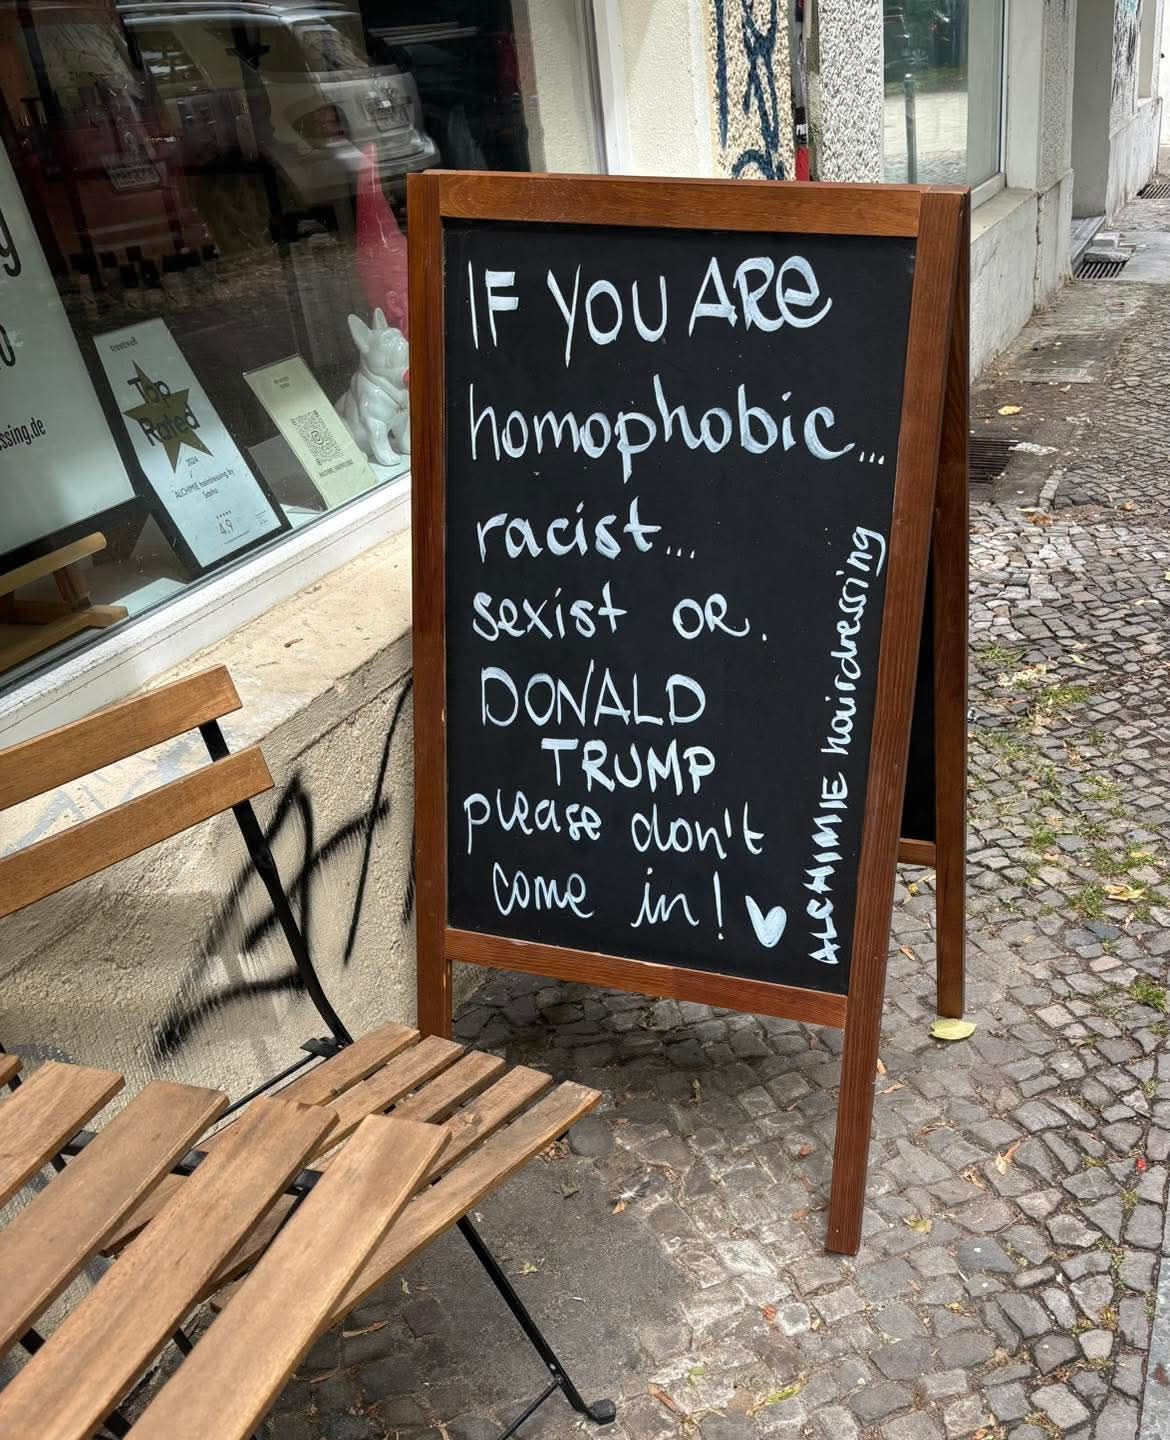 IF YOU ARE
homophobic...
racist...
sexist OR.
DONALD
TRUMP
please don't
come in!
ALCHIMIE hairdressing
ssing.de
treatwell
Top
Rated
2024
ALCHIMIE hairdressing by
Sasha
4,9